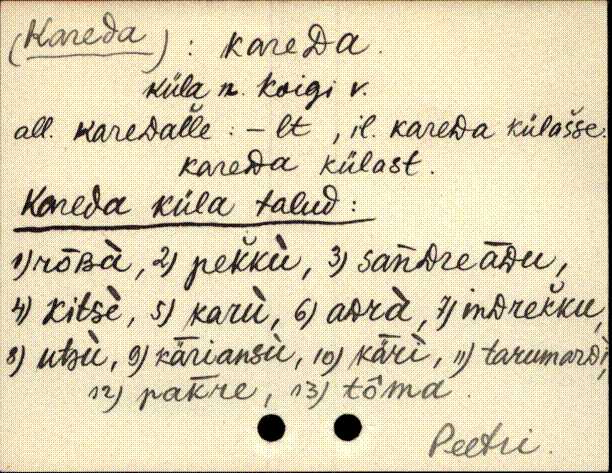 (Kareda) : kareᴅa.
küla n. Koigi v.
all. kareᴅal̆le : - lt , il. kareᴅa külas̆se.
kareᴅa külast.
Kareda küla talud:
1) rōʙà, 2) pek̆kù, 3) san̄ᴅreāᴅu,
4) kitsè, 5) karù, 6) aᴅrà, 7) inᴅrek̆ku,
8) utsù, 9) kāriansù, 10) kārì, 11) tarumarᴅì,
12) pak̄re, 13) tôma.
Peetri.